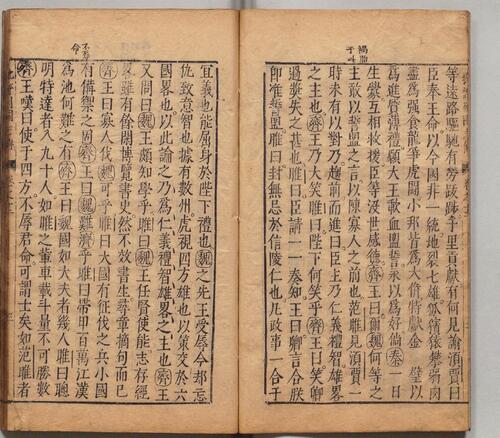 等遠路驅馳有勞跋踄千里言獻有何見諭須賈曰
臣奉王命以今國非一統地裂七雄狐猜猿攀弱肉
盡為強食龍爭虎鬪小邦皆為大價特獻金璧以
為進贄薄禮顧大王歃血盟誓永以為好倘秦一日
生變互相救援臣等沒世感德齊王曰爾魏何等之
主敢以誓盟之言以陳寡人之前也范雎見須賈
時未有以對乃趨前而進曰臣主乃仁義禮智雄畧
之主也齊王乃大笑雎曰陛下何笑乎齊王曰笑卿
過獎失之甚也雎曰臣請一一奏知王曰卿言合朕
卽准誓盟雎曰封無忌於信陵仁也凡政事一合于
宜義也能屈身於陛下禮也魏之先王受辱今却忘
仇致意智也據有數州虎視四方雄也以策交於六
國畧也以此論之乃為仁義禮智雄畧之主也齊王
又問曰魏王頗知學乎雎曰魏王任賢使能志存經
畧雖有餘閒博覽書史然不效書生尋章摘句而已
齊王曰寡人伐魏可乎雎曰大國有征伐之兵小國
有備禦之固齊王曰魏難濟乎雎曰帶甲百萬江漢
為池何難之有齊王曰魏國如大夫者幾人雎曰聰
明特達者八九十人如雎之輩車載斗量不可勝數
齊王嘆曰使于四方不辱君命可謂士矣如范雎者